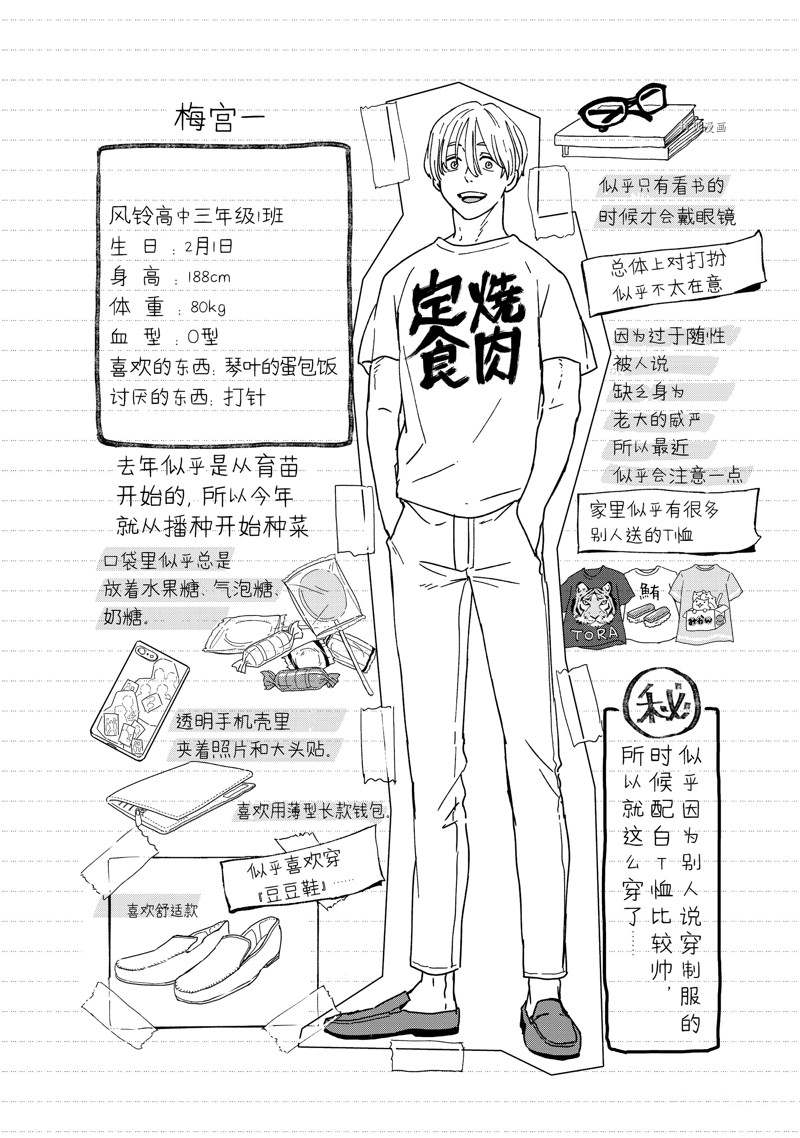 梅宫一
风铃高中三年级1班
生 日 : 2月1日
身 高 : 188cm
体 重 : 80kg
血 型 : O型
喜欢的东西: 琴叶的蛋包饭
讨厌的东西: 打针
去年似乎是从育苗
开始的, 所以今年
就从播种开始种菜
口袋里似乎总是
放着水果糖、气泡糖、
奶糖。
透明手机壳里
夹着照片和大头贴。
喜欢用薄型长款钱包。
似乎喜欢穿
『豆豆鞋』……
喜欢舒适款
焼肉
定食
似乎只有看书的
时候才会戴眼镜
总体上对打扮
似乎不太在意
因为过于随性
被人说
缺乏身为
老大的威严
所以最近
似乎会注意一点
家里似乎有很多
别人送的T恤
TORA
鮪
秘
似乎因为别人说穿制服的
时候配白T恤比较帅,
所以就这么穿了……